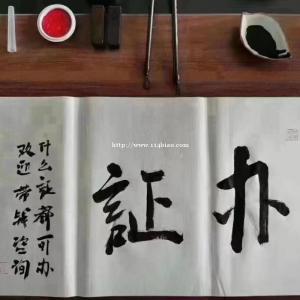 办証
什么証都可办
欢迎带钱咨询
http://www.114biao.com